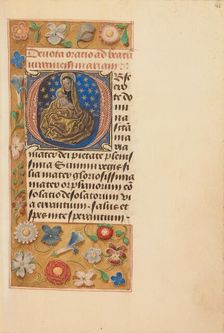 Devota oratio ad beatā
virginem mariam
Obsec
ro te do
mi
na
sctā ma
ria
mater dei pietate pleni
ssima Summi regis fi
lia mater gloriosissima
mater orphanorum con
solatio desolatorum vi
a errantium salus et
spes in te sperantium